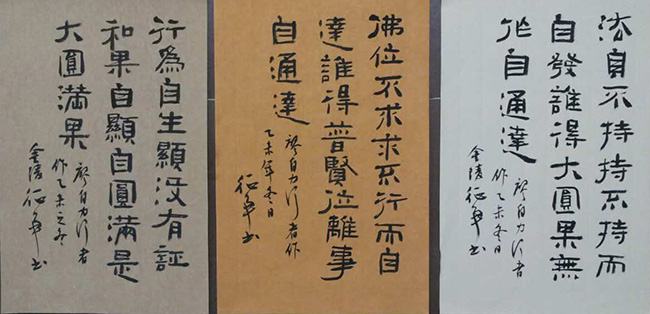 法身不持持不持而
自發誰得大圓果無
作自通達
廖自力行者
作乙未冬日
金陵征 書
佛位不求求不行而自
達誰得普賢位離事
自通達
廖自力行者作
乙未年冬日
征 書
行為自生顯沒有証
和果自顯自圓滿是
大圓滿果
廖自力行者
作乙未之冬
金陵征 書